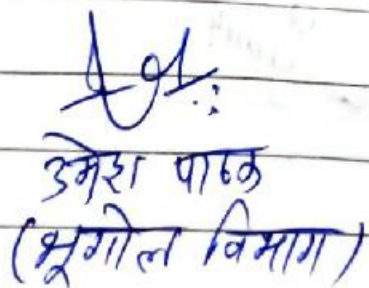 उमेश पाठक
(भूगोल विभाग)